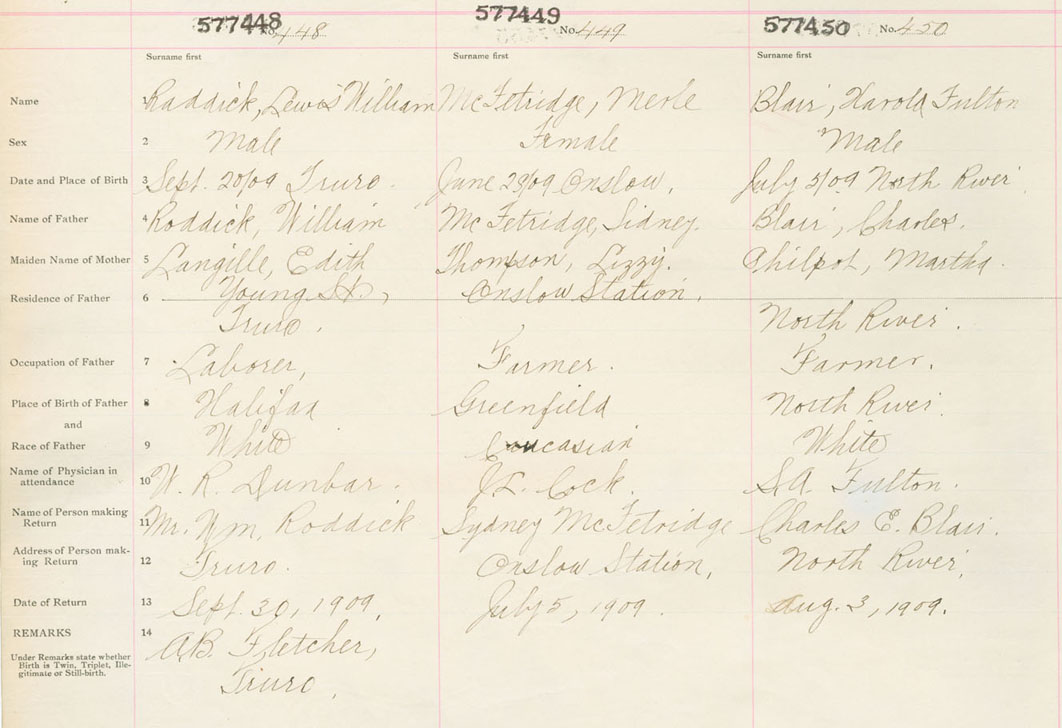 577448 No. 448 577449 No. 449 577450 No. 450
Surname first Surname first Surname first
Name 1 Raddick, Lewis William McFetridge, Merle Blair, Harold Fulton
Sex 2 Male Female Male
Date and Place of Birth 3 Sept. 20/09 Truro. June 29/09 Onslow, July 5/09 North River
Name of Father 4 Roddick, William McFetridge, Sidney. Blair, Charles.
Maiden Name of Mother 5 Langille, Edith Thompson, Lizzy. Philpot, Martha.
Residence of Father 6 Young St., Onslow Station.
Truro. North River.
Occupation of Father 7 Laborer, Farmer. Farmer.
Place of Birth of Father 8 Halifax Greenfield North River.
and
Race of Father 9 White Caucasian White
Name of Physician in
attendance 10 W. R. Dunbar. J.L. Cock. S.A. Fulton.
Name of Person making
Return 11 Mr. Wm. Roddick Sydney McFetridge Charles E. Blair.
Address of Person mak-
ing Return 12 Truro. Onslow Station, North River,
Date of Return 13 Sept. 30, 1909, July 5, 1909. Aug. 3, 1909.
REMARKS 14 A.B. Fletcher,
Under Remarks state whether
Birth is Twin, Triplet, Ille-
gitimate or Still-birth.
Truro,